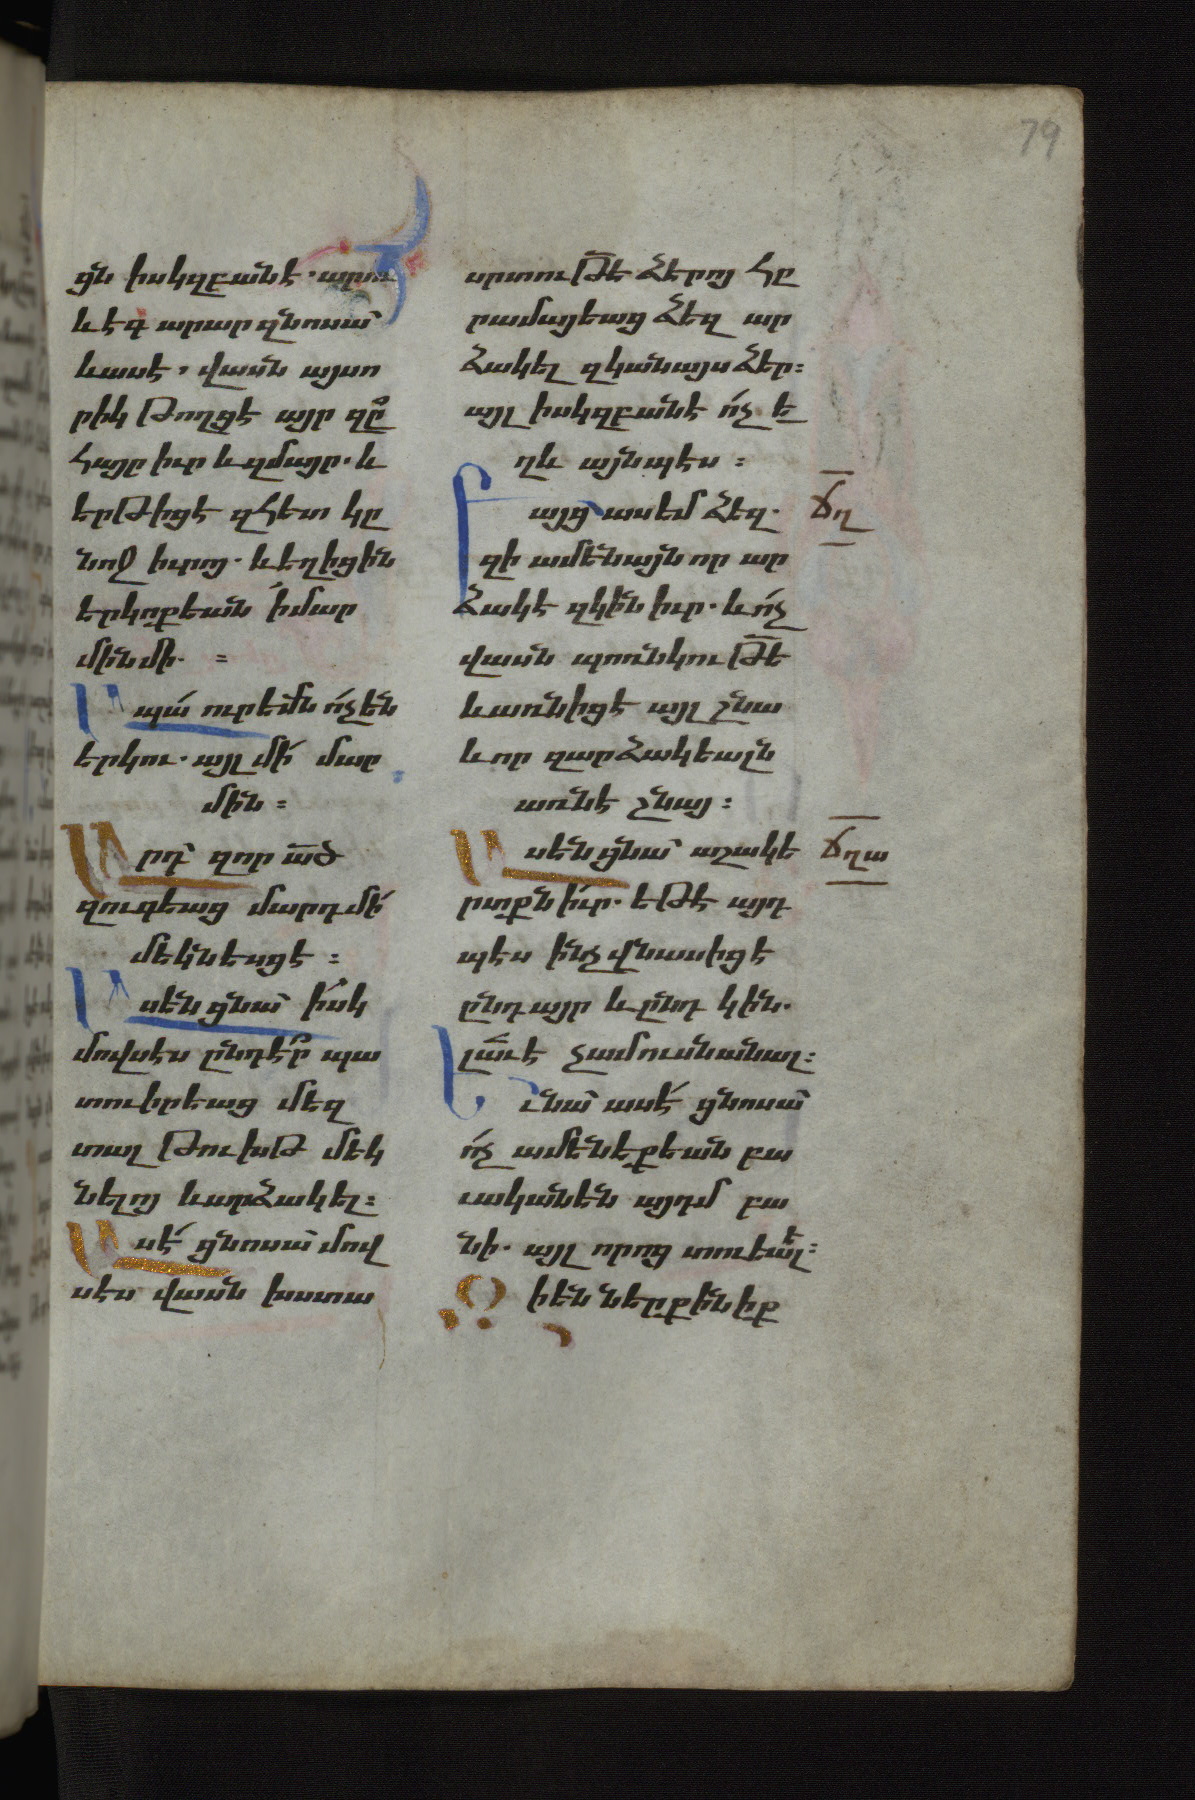 79
ցն իսկզբանէ. արու
և էգ արար զնոսա՝
և ասէ, վասն այսո
րիկ թողցէ այր զը
հայր իւր և զմայր. և
երթիցէ զհետ կը
նոջ իւրոյ. և եղիցին
երկոքեան ՛ի մար
մին մի. =
Ապա՛ ուրեմն ո՛չ են
երկու. այլ մի՛ մար
մին =
Արդ՝ զոր ած
զուգեաց մարդ մի՛
մեկնեսցէ :
Ասեն ցնա՝ ի՛սկ
մովսէս ընդէ՞ր պա
տուիրեաց մեզ
տալ թուխթ մեկ
նելոյ և արձակել :
Ասէ՛ ցնոսա՝ մով
սէս վասն խստա
սրտուԹե ձերոյ հը
րամայեաց ձեզ ար
ձակել զկանայս ձեր :
այլ իսկզբանէ ո՛չ ե
ղև այնպէս :
Բայց ասեմ ձեզ.
զի ամենայն որ ար
ձակէ զկին իւր. և ո՛չ
վասն պոռնկուԹե
և առնիցէ այլ շնա
և որ զարձակեալն
առնէ շնայ :
Ասեն ցնա՝ աշակե
րտքն իւր. եթէ այդ
պէս ինչ վնասիցէ
ընդ այր և ընդ կին.
լա՛ւ է չամուսնանալ :
Եւ նա՝ ասէ՛ ցնոսա՝
ո՛չ ամենեքեան բա
ւական են այդմ բա
նի. այլ որոց տուեալ է :
Զի են ներքինիք
ճղ
ճղա